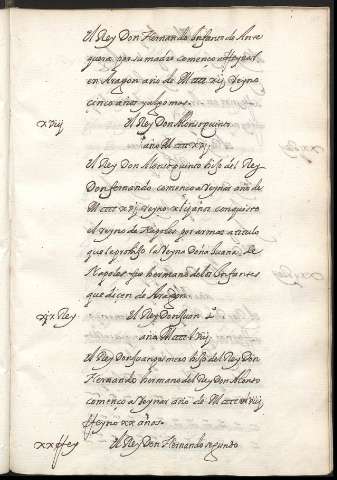 El Rey Don Hernando Infante de Ante
quera por su madre començo a Reynar
en Aragon año de Mcccc xij Reyno
cinco años y algo mas.
xviij El Rey Don Alonso quinto
año Mcccc xvj
El Rey Don Alonso quinto hijo del Rey
Don fernando començo a Reynar año de
Mcccc xvj Reyno xlij años conquisto
el reyno de Napoles por armas a titulo
que le prohijo la Reyna Doña Juana de
Napoles fue hermano de los Infantes
que dicen de Aragon
xix Rey El Rey Don Juan 2º
año Mcccc lviij
El Rey Don Joan primero hijo del Rey Don
Hernando hermano del Rey Don Alonso
començo a Reynar año de Mcccc lviij
Reyno xx años.
xx Rey El Rey Don Hernando segundo